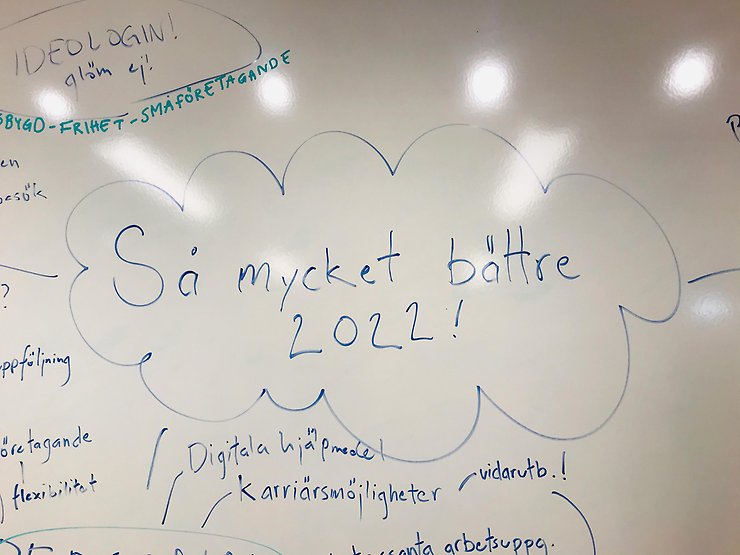 IDEOLOGIN!
glöm ej!
BYGD-FRIHET-SMÅFÖRETAGANDE
en
besök
Så mycket bättre
2022!
?
ppföljning
öretagande
flexibilitet
Digitala hjäpmedel
Karriärsmöjligheter
vidarutb.!
santa arbetsuppg.